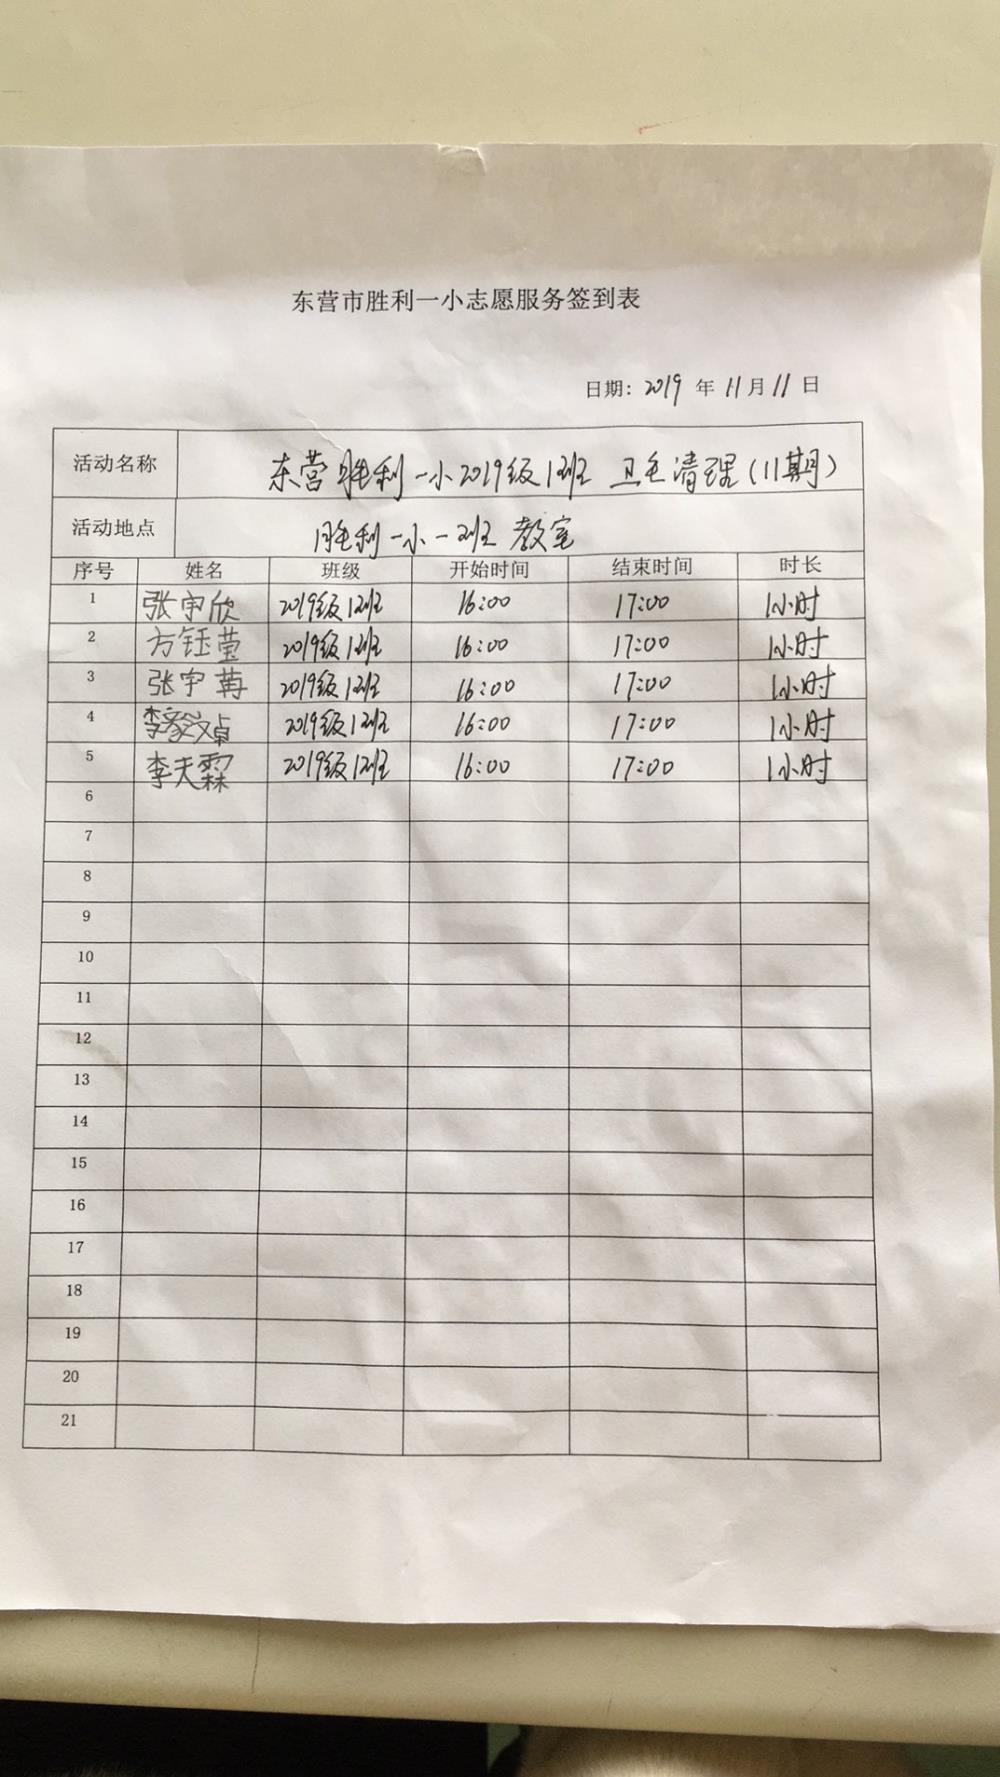 东营市胜利一小志愿服务签到表
日期: 2019 年 11 月 11 日
活动名称 东营胜利一小2019级1班 卫生清理(11期)
活动地点 胜利一小一班 教室
序号 姓名 班级 开始时间 结束时间 时长
1 张宇欣 2019级1班 16:00 17:00 1小时
2 方钰莹 2019级1班 16:00 17:00 1小时
3 张宇 2019级1班 16:00 17:00 1小时
4 李 卓 2019级1班 16:00 17:00 1小时
5 李天霖 2019级1班 16:00 17:00 1小时
6
7
8
9
10
11
12
13
14
15
16
17
18
19
20
21